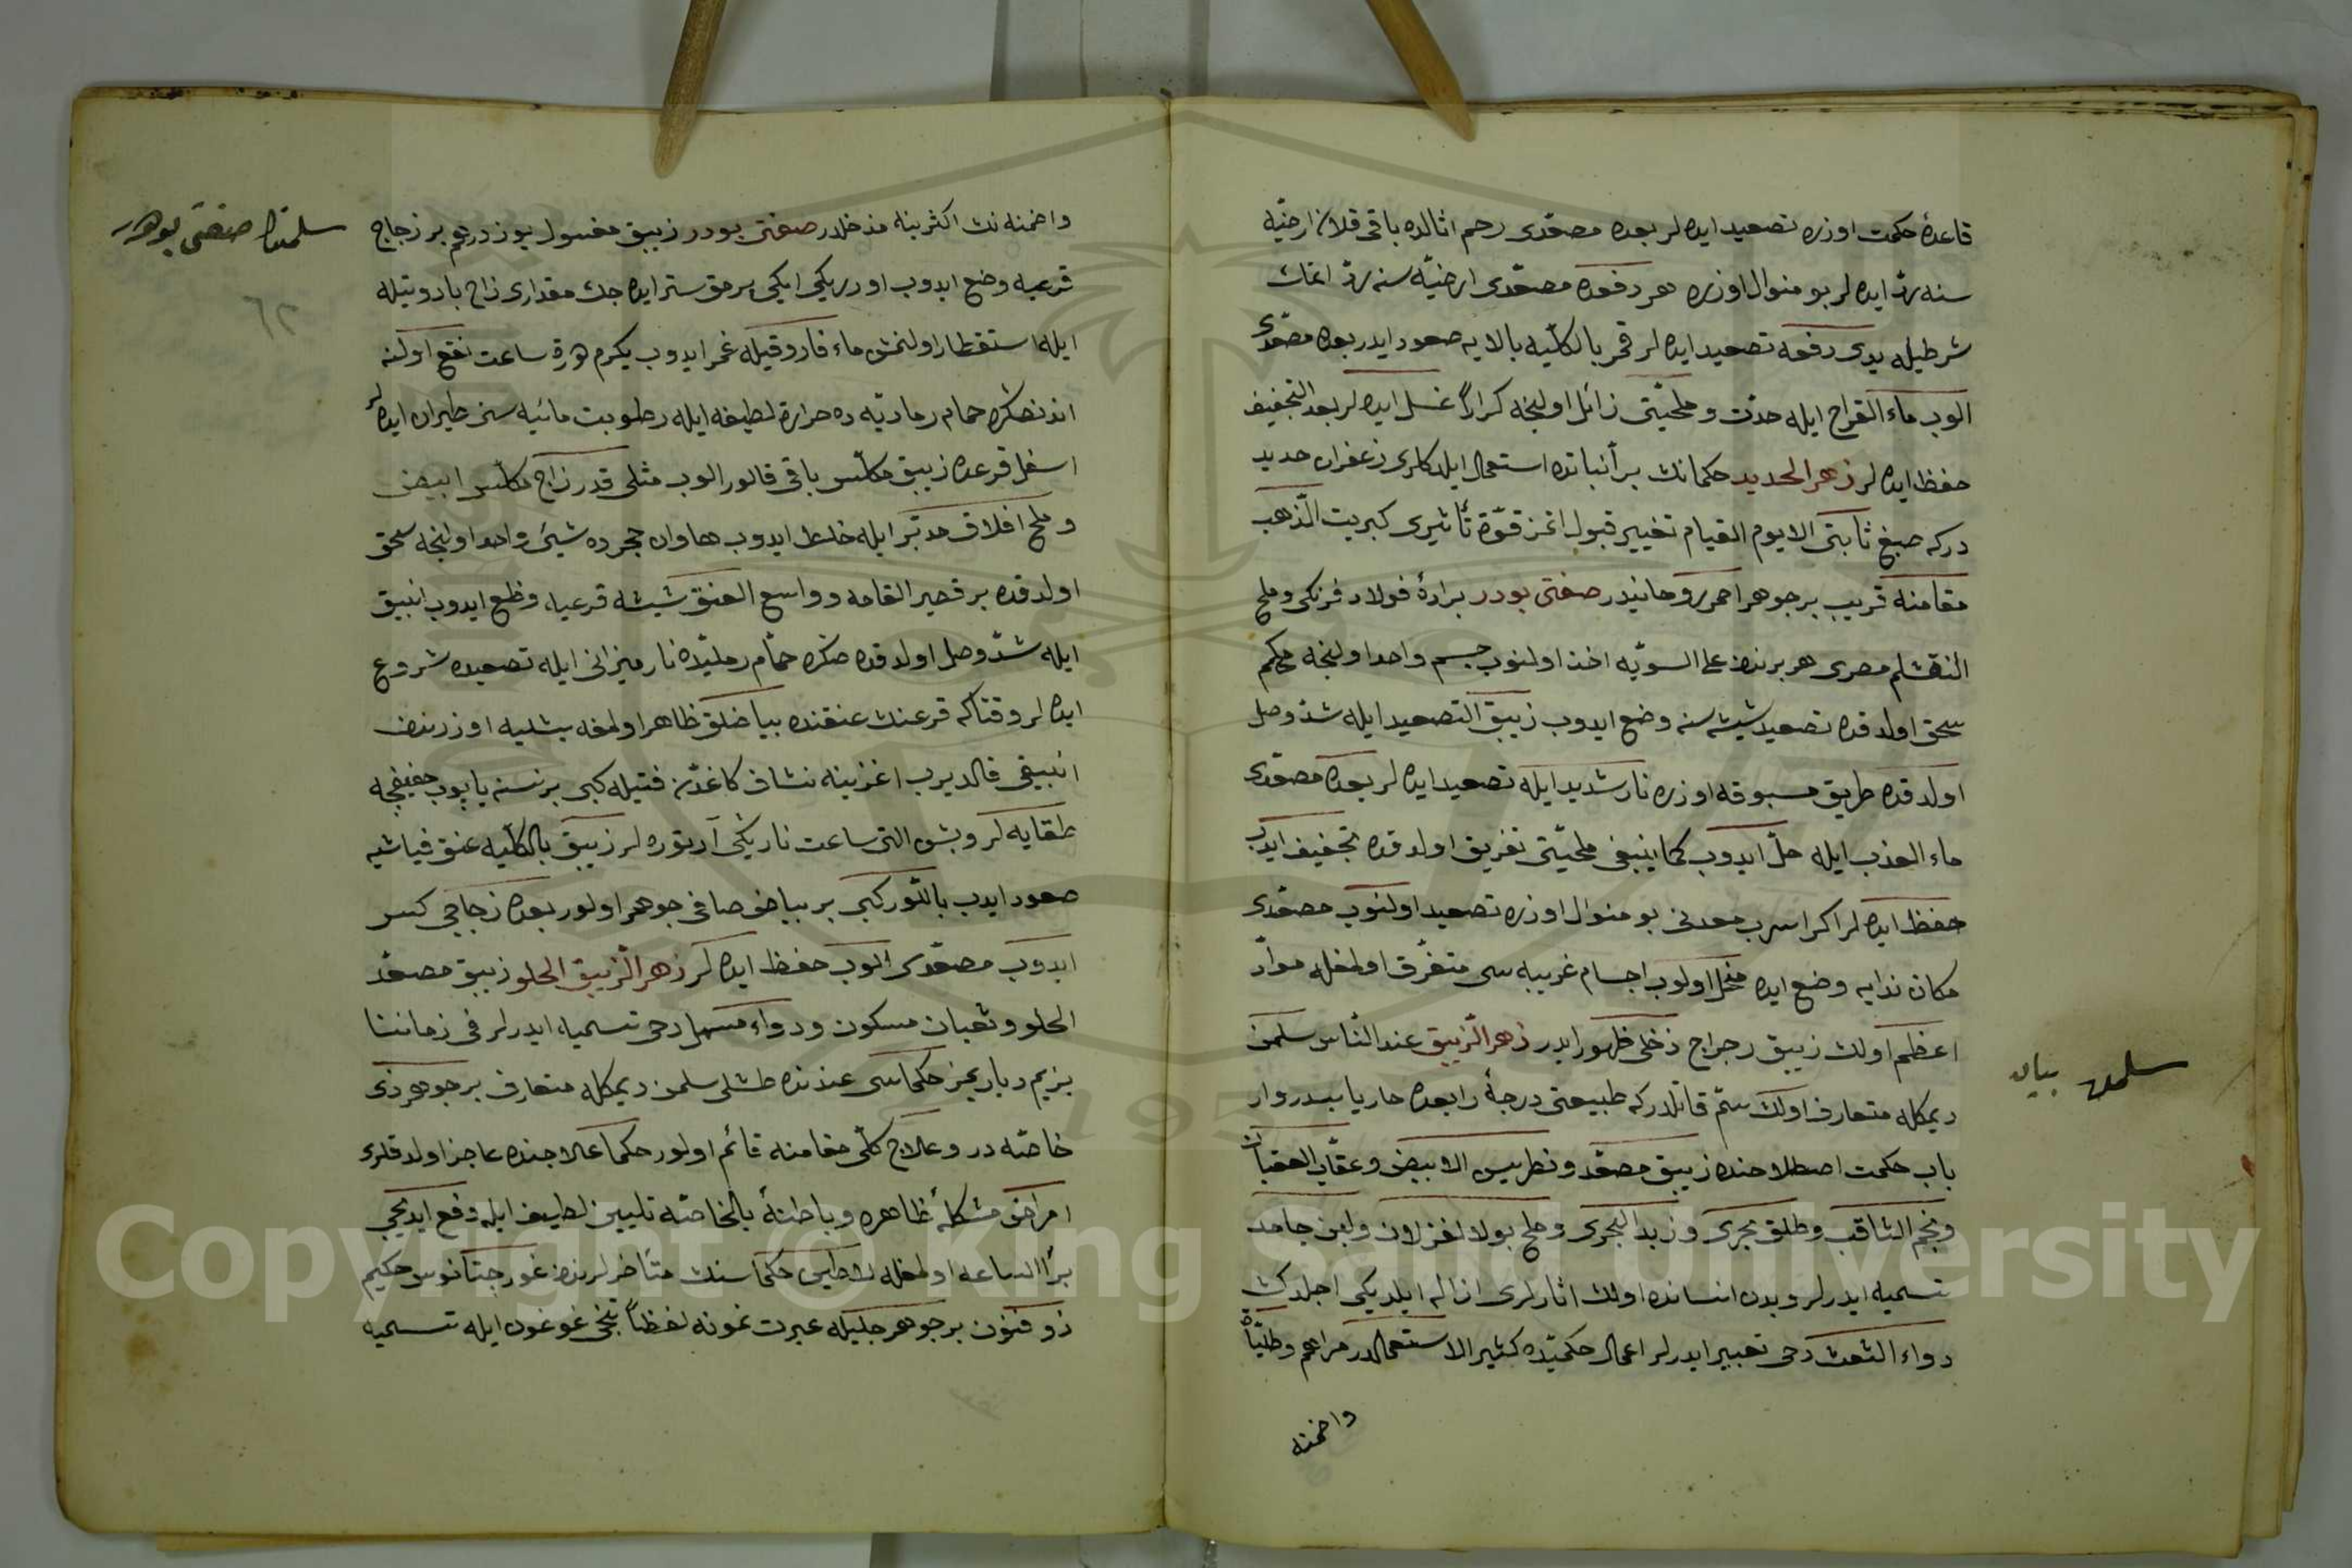 قاعدهٔ حكمت اوزره تصعيد ايده لر بعده مصعّدى رحم اثالده باقى قلان ارضيّه
سنه ردّ ايده لر بو منوال اوزره هر دفعه مصعّدى ارضيّه سنه ردّ اتمك
شرطيله يدى دفعه تصعيد ايده لر قمر بالكلّيه بالايه صعود ايدر بعده مصعّدى
الوب ماء القراح ايله حدّت و ملحيّتى زائل اولنجه كراراً غسل ايده لر بعد التجفيف
حفظ ايده لر زهر الحديد حكمانك برأنباتده استعمال ايلدكلرى زعفران حديد
دركه صبغ ثابتى الا يوم القيام تغيير قبول اتمز قوّة تأثيرى كبريت الذّهب
مقامنه قريب بر جوهر احمر روحانيدر صفتى بودر برادهٔ فولاد فرنكى و ملح
النقشلم مصرى هر برندن على السويّه اخذ اولنوب جسم واحد اولنجه محكم
سحق اولدقده تصعيد شيشه سنه وضع ايدوب زيبق التصعيد ايله شدّ وصل
اولدقده طريق مسبوقه اوزره نار شديد ايله تصعيد ايده لر بعده مصعّدى
ماء العذب ايله حلّ ايدوب كما ينبغى ملحيّتى تفريق اولدقده تجفيف ايدوب
حفظ ايده لر اكر اسرب معدنى بو منوال اوزره تصعيد اولنوب مصعّدى
مكان ندايه وضع ايده منحل اولوب اجسام غريبه سى متفرّق اولمغله موادّ
اعظم اولان زيبق رجراج دخى ظهور ايدر زهر الزّيبق عند النّاس سلمن
ديمكله متعارف اولان سمّ قاتلدركه طبيعتى درجهٔ رابعده حار يابسدر و ار
باب حكمت اصطلاحنده زيبق مصعّد و نطريس الابيض و عقّاب العقبان
و نجم الثاقب و طلق بحرى و زبد البحرى و ملح بولا لغزلان و لبن جامد
تسميه ايدرلر و بدن انسانده اولان اثارلرى ازاله ايلديكى اجلدن
دواء الثعث دخى تعبير ايدرلر اعمال حكميّده كثير الاستعمالدر مراهم و طليّات
واضمنه
سلمن بيان
واضمنه نك اكثرينه مدخلدر صفتى بودر زيبق مغسول يوز درهم بر زجاج
قرعيه وضع ايدوب اوزريكى ايكى برمق ستر ايده جك مقدارى زاج بارود تيله
ايله استقطار اولنمش ماء فاروقيله غمر ايدوب يكرم درة ساعت نقع اولنه
اندنصكره حمام رماديّه ده حرارة لطيفه ايله رطوبت مائيه سنى طيران ايده لر
اسفل قرعده زيبق مكلّس باقى قالور الوب مثلى قدر زاج مكلّس ابيض
و ملح افلاق مدبّر ايله خلط ايدوب هاوان حجرده شيئ واحد اولنجه سحق
اولدقده بر قصير القامه و واسع العنق شيشه قرعيه وضع ايدوب انبيق
ايله شدّ وصل اولدقده صكره حمّام رمليّده نار ميزانى ايله تصعيده شروع
ايده لر وقتاكه قرعنك عنقنده بياضلق ظاهر اولمغه بشليه اوزرندن
انبيقى قالديرب اغزينه نشاف كاغدّن فتيله كبى بر نسنه ياپوب خفيفجه
طقايه لر و بش التى ساعت ناريكى آرتوره لر زيبق بالكلّيه عنق قياشيه
صعود ايدب بالثور كبى بر بياض صافى جوهر اولور بعده زجاجى كسر
ايدوب مصعّدى الوب حفظ ايده لر زهر الزيبق الحلو زيبق مصعّد
الحلو و ثعبان مسكون و دواء مسهل دخى تسميه ايدرلر فى زماننا
بزيم ديار يمز حكماسى عندنده طتلى سلمن ديمكله متعارف بر جوهر ذى
خاصّه در و علاج كلّى مقامنه قائم اولور حكما علاجنده عاجز اولدقلرى
امراض مشكلهٔ ظاهره و باطنهٔ بالخاصّه تليين لطيف ايله دفع ايديجى
برّا الساعه اولمغله لاطين حكماسنك متأخرلرندن غورجتانوس حكيم
ذو فنون بر جوهر جليله عبرت نمونه لفظاً پنخى غوغون ايله تسميه
سلمنك صفتى بودر
٦٢
Copyright © King Saud University
195